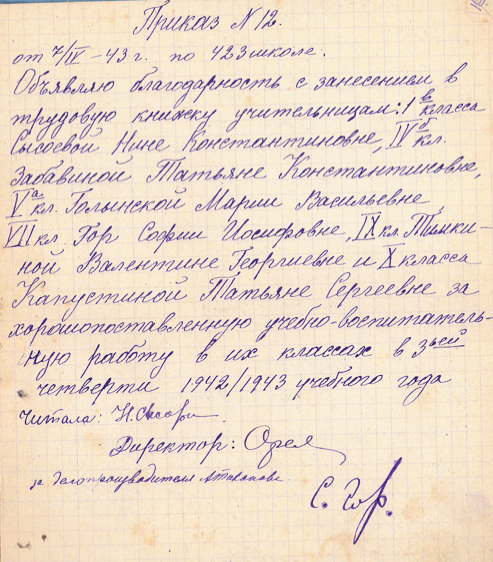 Приказ N 12.
от 7/IV - 43 г. по 423 школе.
Объявляю благодарность с занесением в
трудовую книжку учительницам: 1 в класса
Сысоевой Нине Константиновне, IV б кл.
Забавиной Татьяне Константиновне,
V а кл. Голынской Марии Васильевне,
VII кл. Гор Софии Иосифовне, IX кл. Тимки-
ной Валентине Георгиевне и X класса
Капустиной Татьяне Сергеевне за
хорошопоставленную учебно-воспитатель-
ную работу в их классах в 3ьей
четверти 1942/1943 учебного года
Читала: Н.
Директор:
за делопроизводителя
С. Гор.